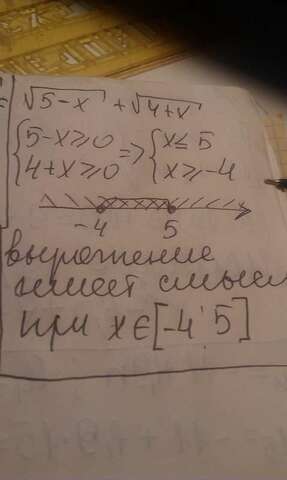 = √5-x + √4+x
{5-x≥0 => {x≤5
{4+x≥0 {x≥-4
-4 5
выражение
имеет смысл
при x∈[-4; 5]